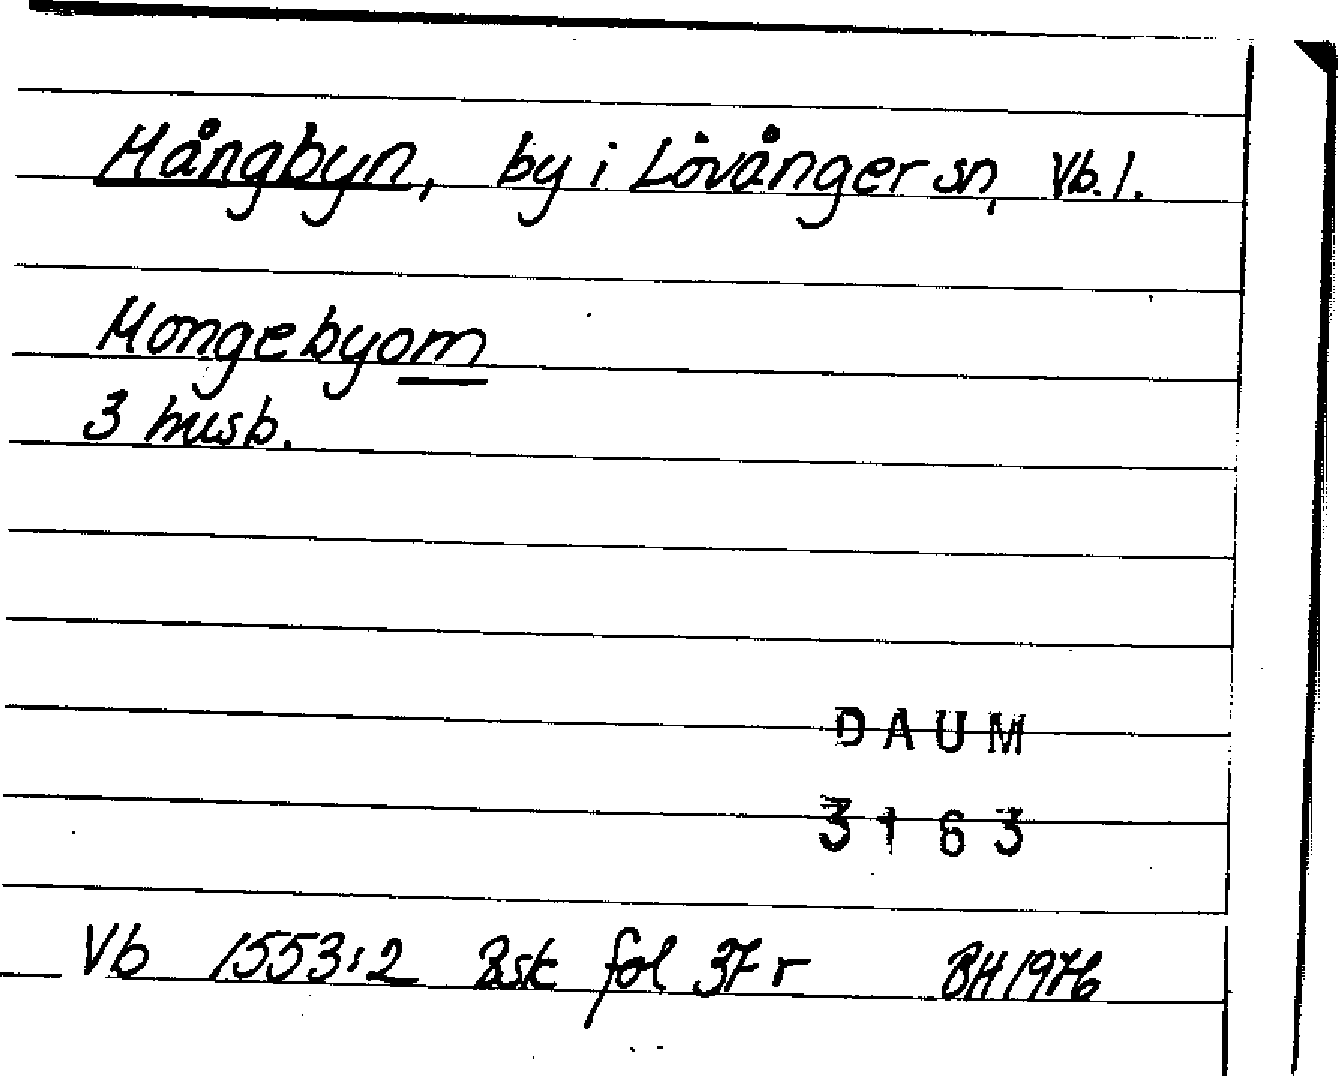 Mångbyn, by i Lövånger sn, Vb. l.
Mongebyom
3 husb.
DAUM
3163
Vb 1553:2 Bsk fol 37 r BH 1976